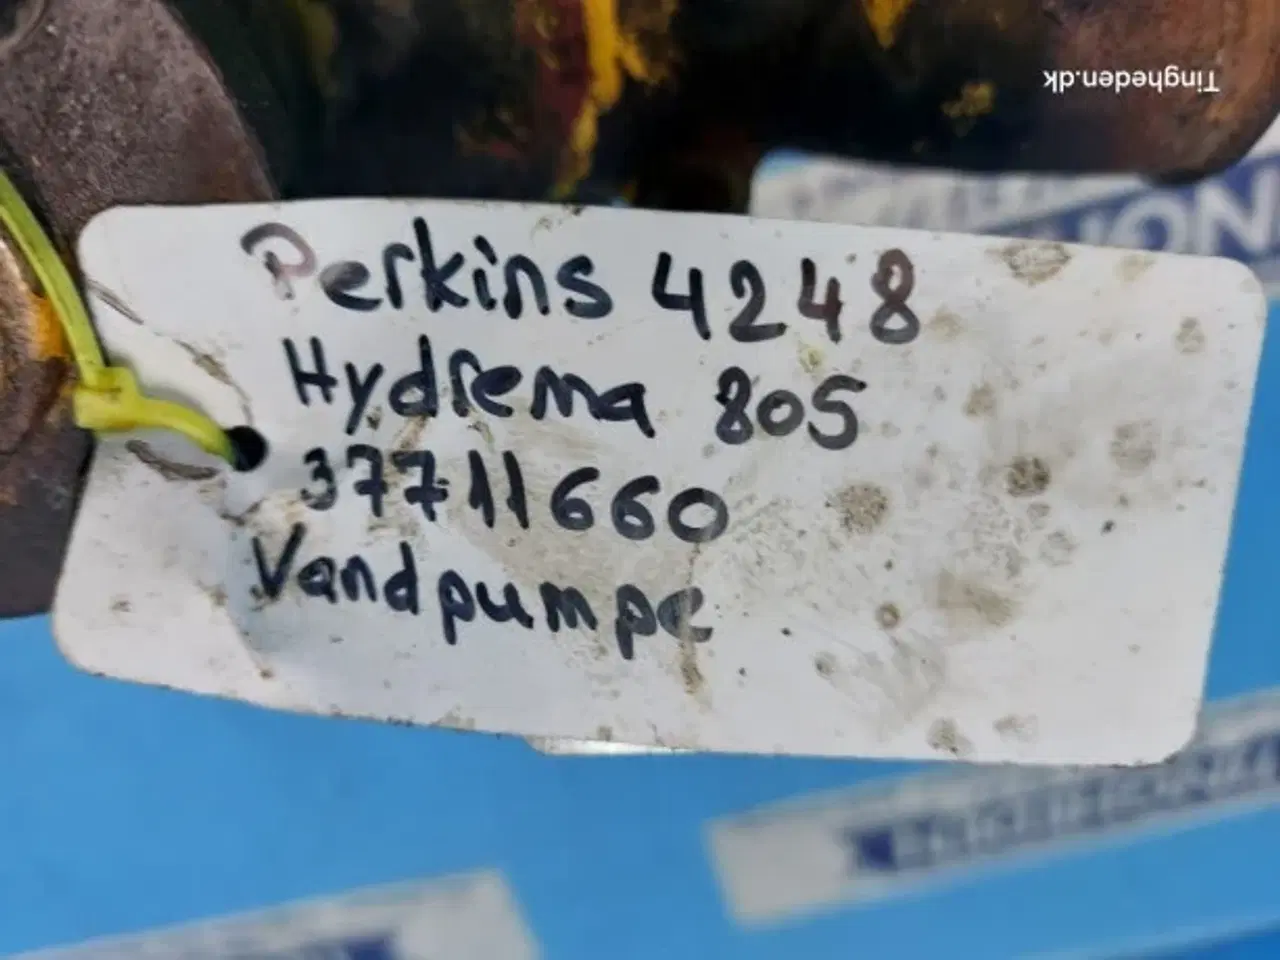 Tingheden.dk
Perkins 4248
Hydrema 805
37711660
Vandpumpe